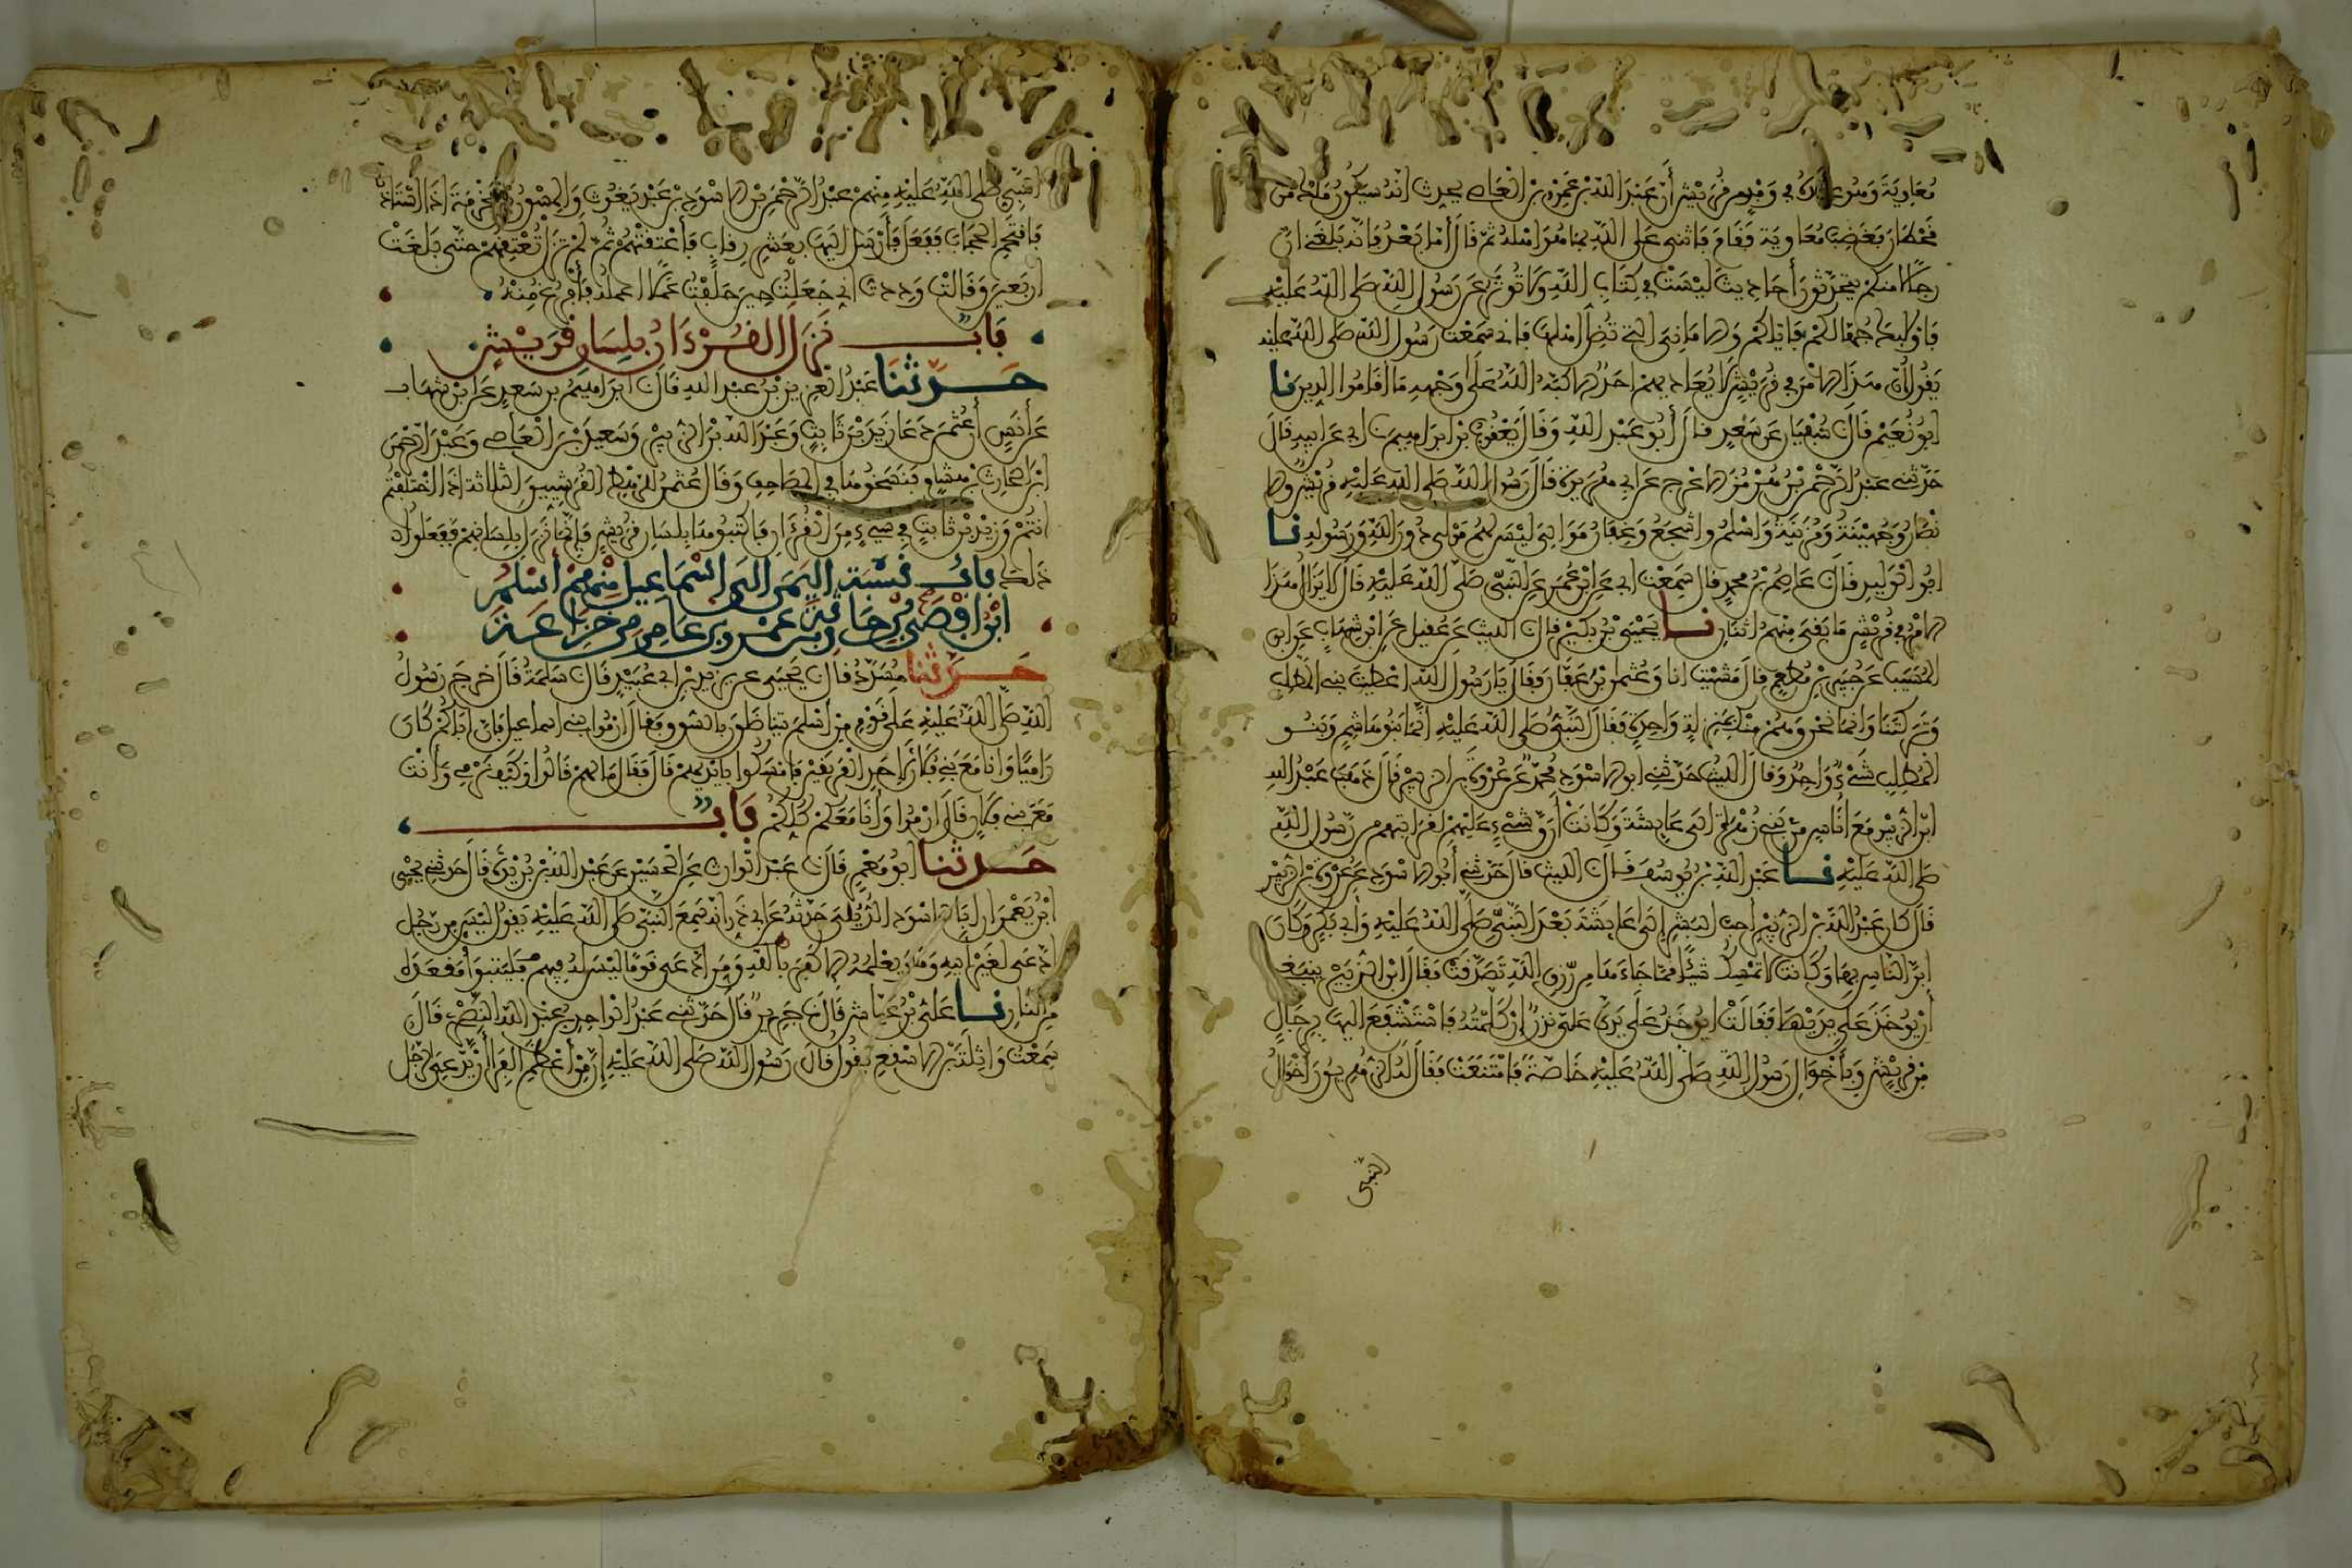 معاوية وهو عنده في وفد من قريش أن عبد الله بن عمرو بن العاصي يحدث انه سيكون ملك من
قحطان فغضب معاوية فقام فاثنى على الله بما هو اهله ثم قال أما بعد فانه بلغني ان
رجالا منكم يتحدثون أحاديث ليست في كتاب الله ولا تؤثر عن رسول الله صلى الله عليه
فاولئك جهالكم فاياكم والاماني التي تضل اهلها فاني سمعت رسول الله صلى الله عليه
يقول إن هذا الامر في قريش لا يعاديهم احد الا كبه الله على وجهه ما أقاموا الدين نا
ابو نعيم قال نا سفيان عن سعد قال أبو عبد الله وقال يعقوب بن ابراهيم نا ابي عن ابيه قال
حدثني عبد الرحمن بن هرمز الاعرج عن ابي هريرة قال رسول الله صلى الله عليه قريش والا
نصار وجهينة ومزينة واسلم واشجع وغفار موالي ليس لهم مولى دون الله ورسوله نا
ابو الوليد قال نا عاصم بن محمد قال سمعت ابي عن ابن عمر عن النبي صلى الله عليه قال لا يزال هذا
الامر في قريش ما بقي منهم اثنان نا يحيى بن بكير قال نا الليث عن عقيل عن ابن شهاب عن ابن
المسيب عن جبير بن مطعم قال مشيت انا وعثمن بن عفان فقال يا رسول الله اعطيت بني المطلب
وتركتنا وانما نحن وهم منك بمنزلة واحدة فقال النبي صلى الله عليه انما بنو هاشم وبنو
المطلب شيء واحد وقال الليث حدثني ابو الاسود محمد عن عروة بن الزبير قال ذهب عبد الله
ابن الزبير مع أناس من بني زهرة الى عايشة وكانت أرق شيء عليهم لقرابتهم من رسول الله
صلى الله عليه نا عبد الله بن يوسف قال نا الليث قال حدثني أبو الاسود عن عروة بن الزبير
قال كان عبد الله بن الزبير أحب البشر إلى عايشة بعد النبي صلى الله عليه وأبي بكر وكان
ابر الناس بها وكانت لا تمسك شيئا مما جاءها من رزق الله تصدقت فقال ابن الزبير ينبغي
أن يوخذ على يديها فقالت ايوخذ على يدي علي نذر إن كلمته فاستشفع اليها برجال
من قريش وبأخوال رسول الله صلى الله عليه خاصة فامتنعت فقال له الزهريون أخوال
النبي
النبي صلى الله عليه منهم عبد الرحمن بن الاسود بن عبد يغوث والمسور بن مخرمة اذا استاذنا
فاقتحم الحجاب ففعل فأرسل اليها بعشر رقاب فأعتقتهم ثم لم تزل تعتقهم حتى بلغت
اربعين وقالت وددت اني جعلت حين حلفت عملا اعمله فأفرغ منه
باب نزل القرءان بلسان قريش
حدثنا عبد العزيز بن عبد الله قال نا ابراهيم بن سعد عن ابن شهاب
عن أنس أن عثمن دعا زيد بن ثابت وعبد الله بن الزبير وسعيد بن العاصي وعبد الرحمن
ابن الحارث بن هشام فنسخوها في المصاحف وقال عثمن للرهط القرشيين الثلاثة اذا اختلفتم
انتم وزيد بن ثابت في شيء من القرءان فاكتبوها بلسان قريش فإنما نزل بلسانهم ففعلوا
ذلك باب نسبة اليمن إلى إسماعيل منهم أسلم
ابن افصى بن حارثة بن عمرو بن عامر من خزاعة
حدثنا مسدد قال نا يحيى عن يزيد بن ابي عبيد قال نا سلمة قال خرج رسول
الله صلى الله عليه على قوم من أسلم يتناضلون بالسوق فقال ارموا بني اسماعيل فان أباكم كان
راميا وانا مع بني فلان لاحد الفريقين فامسكوا بايديهم قال فقال ما لهم قالوا وكيف نرمي وأنت
مع بني فلان قال ارموا وأنا معكم كلكم باب
حدثنا ابو معمر قال نا عبد الوارث عن الحسين عن عبد الله بن بريدة قال حدثني يحيى
ابن يعمر ان أبا الاسود الديلي حدثه عن ابي ذر انه سمع النبي صلى الله عليه يقول ليس من رجل
ادعى لغير أبيه وهو يعلمه الا كفر بالله ومن ادعى قوما ليس له فيهم فليتبوأ مقعده
من النار نا علي بن عياش قال نا جرير قال حدثني عبد الواحد بن عبد الله النصري قال
سمعت واثلة بن الاسقع يقول قال رسول الله صلى الله عليه إن من أعظم الفرا أن يدعي الرجل